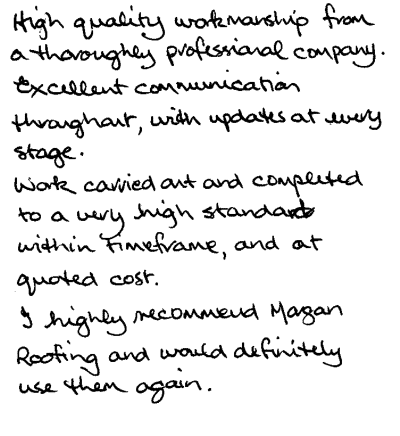 High quality workmanship from
a thoroughly professional company.
Excellent communication
throughout, with updates at every
stage.
Work carried out and completed
to a very high standard
within timeframe, and at
quoted cost.
I highly recommend Magan
Roofing and would definitely
use them again.